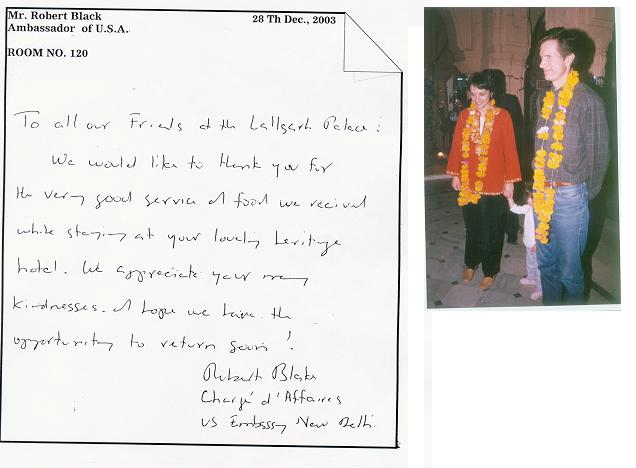 Mr. Robert Black 28 Th Dec., 2003
Ambassador of U.S.A.
ROOM NO. 120
To all our Friends at the Lallgarh Palace:
We would like to thank you for
the very good service & food we received
while staying at your lovely heritage
hotel. We appreciate your many
kindnesses & hope we have the
opportunity to return soon!
Robert Blake
Chargé d'Affaires
US Embassy New Delhi